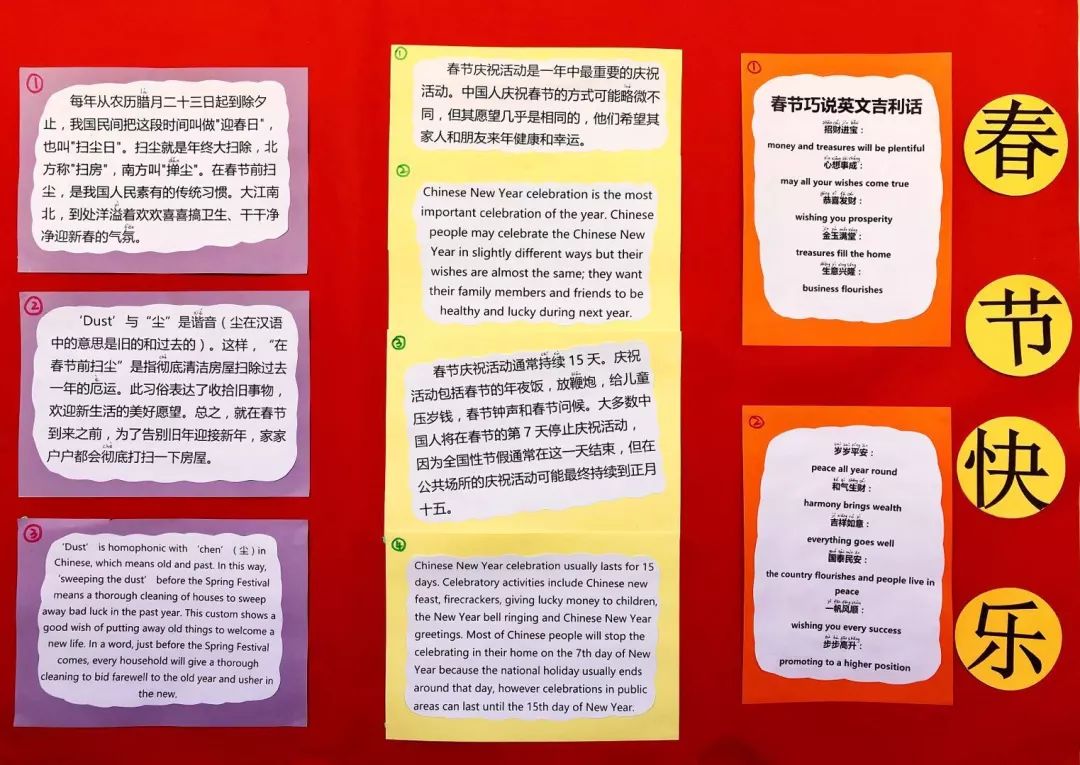 ①
每年从农历腊月二十三日起到除夕
止，我国民间把这段时间叫做"迎春日"，
也叫"扫尘日"。扫尘就是年终大扫除，北
方称"扫房"，南方叫"掸尘"。在春节前扫
尘，是我国人民素有的传统习惯。大江南
北，到处洋溢着欢欢喜喜搞卫生、干干净
净迎新春的气氛。
②
‘Dust’与“尘”是谐音（尘在汉语
中的意思是旧的和过去的）。这样，“在
春节前扫尘”是指彻底清洁房屋扫除过去
一年的厄运。此习俗表达了收拾旧事物，
欢迎新生活的美好愿望。总之，就在春节
到来之前，为了告别旧年迎接新年，家家
户户都会彻底打扫一下房屋。
③
‘Dust’ is homophonic with ‘chen’（尘）in
Chinese, which means old and past. In this way,
‘sweeping the dust’ before the Spring Festival
means a thorough cleaning of houses to sweep
away bad luck in the past year. This custom shows a
good wish of putting away old things to welcome a
new life. In a word, just before the Spring Festival
comes, every household will give a thorough
cleaning to bid farewell to the old year and usher in
the new.
①
春节庆祝活动是一年中最重要的庆祝
活动。中国人庆祝春节的方式可能略微不
同，但其愿望几乎是相同的，他们希望其
家人和朋友来年健康和幸运。
②
Chinese New Year celebration is the most
important celebration of the year. Chinese
people may celebrate the Chinese New
Year in slightly different ways but their
wishes are almost the same; they want
their family members and friends to be
healthy and lucky during next year.
③
春节庆祝活动通常持续 15 天。庆祝
活动包括春节的年夜饭，放鞭炮，给儿童
压岁钱，春节钟声和春节问候。大多数中
国人将在春节的第 7 天停止庆祝活动，
因为全国性节假通常在这一天结束，但在
公共场所的庆祝活动可能最终持续到正月
十五。
④
Chinese New Year celebration usually lasts for 15
days. Celebratory activities include Chinese new
feast, firecrackers, giving lucky money to children,
the New Year bell ringing and Chinese New Year
greetings. Most of Chinese people will stop the
celebrating in their home on the 7th day of New
Year because the national holiday usually ends
around that day, however celebrations in public
areas can last until the 15th day of New Year.
①
春节巧说英文吉利话
招财进宝：
money and treasures will be plentiful
心想事成：
may all your wishes come true
恭喜发财：
wishing you prosperity
金玉满堂：
treasures fill the home
生意兴隆：
business flourishes
②
岁岁平安：
peace all year round
和气生财：
harmony brings wealth
吉祥如意：
everything goes well
国泰民安：
the country flourishes and people live in
peace
一帆风顺：
wishing you every success
步步高升：
promoting to a higher position
春
节
快
乐